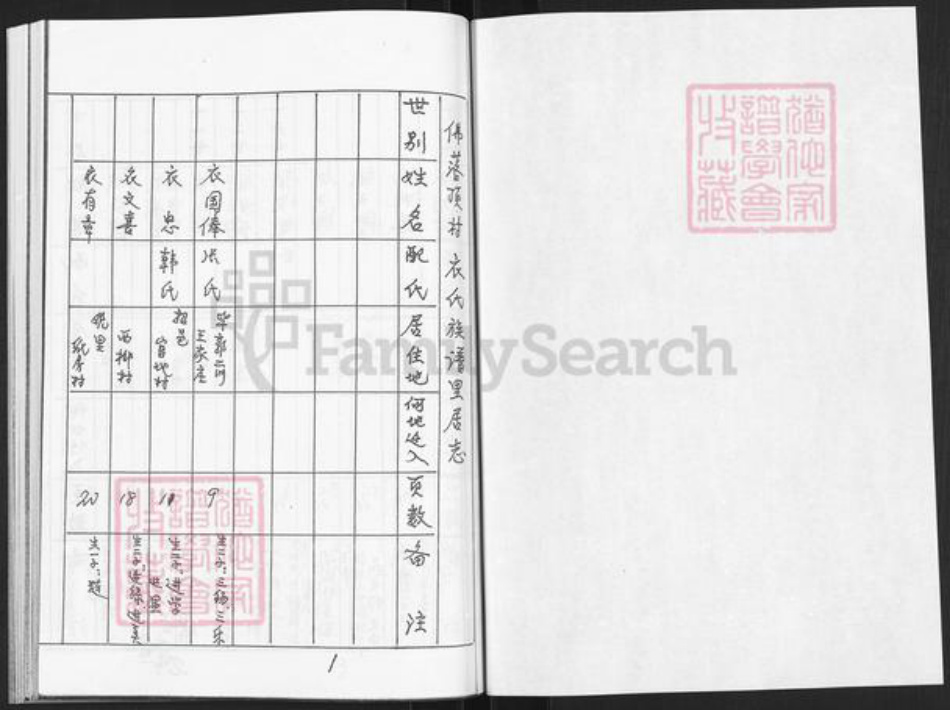 佛落顶村衣氏族谱里居志
世别 姓名 配氏 居住地 何地迁入 页数 备注
衣国俸 张氏 毕郭河 王家庄 9 生二子:三锡、三乐
衣忠 韩氏 招邑 官地村 11 生二子:进学 进昱
衣文喜 西柳村 18 生二子:进禄 进美
衣有章 观里 纸房村 20 生一子:
1
猶他家
譜學會
收藏
猶他家
譜學會
收藏
FamilySearch